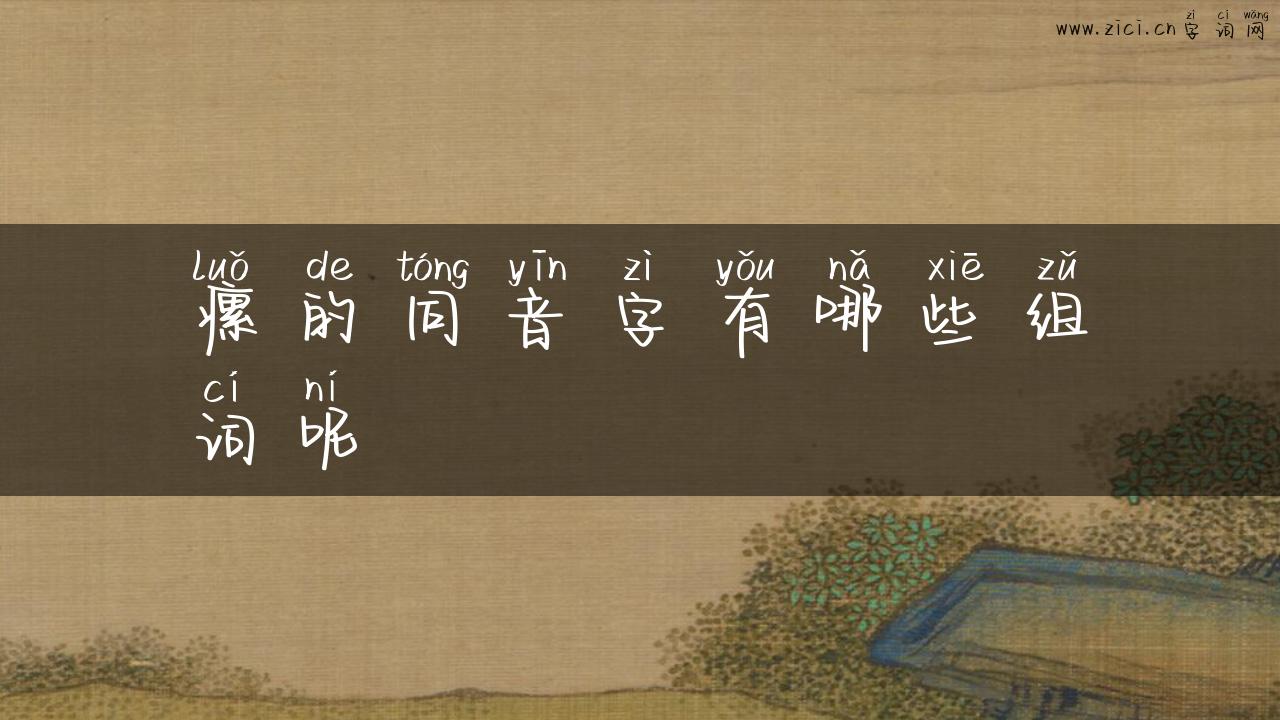 zì cí wǎng
www.zici.cn 字词网
luǒ de tóng yīn zì yǒu nǎ xiē zǔ
瘰的同音字有哪些组
cí ní
词呢